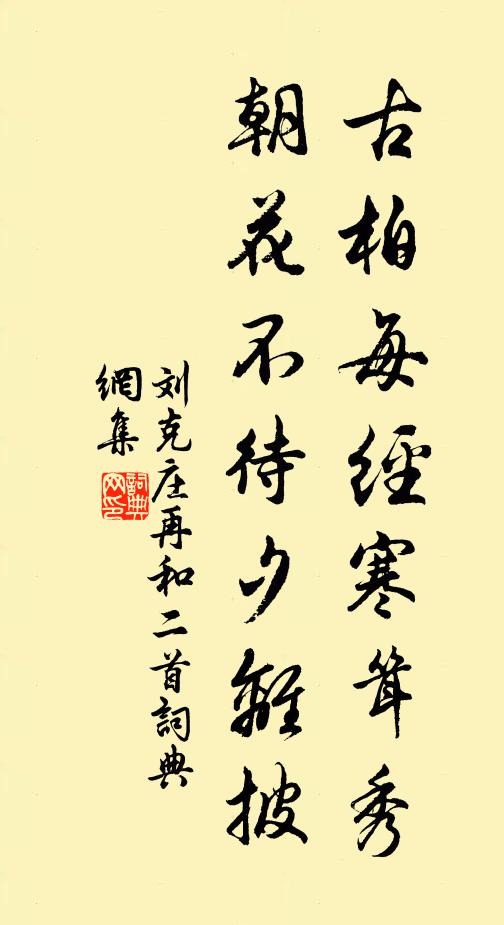 古柏每經寒耸秀
朝花不待夕離披
刘克庄再和二首詞典
網集
詞典网印